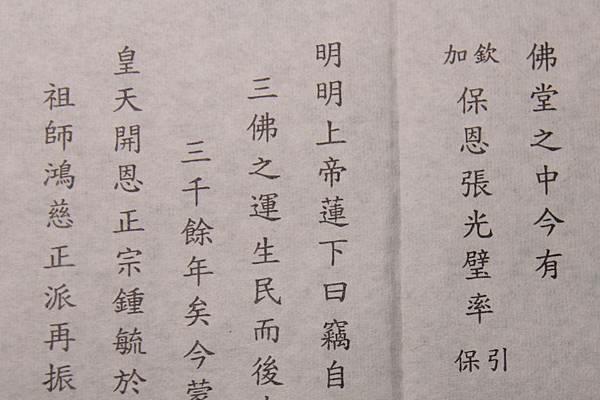 佛堂之中今有
欽加保恩張光璧率引保
明明上帝蓮下曰竊自
三佛之運生民而後
三千餘年矣今蒙
皇天開恩正宗鍾毓於
祖師鴻慈正派再振